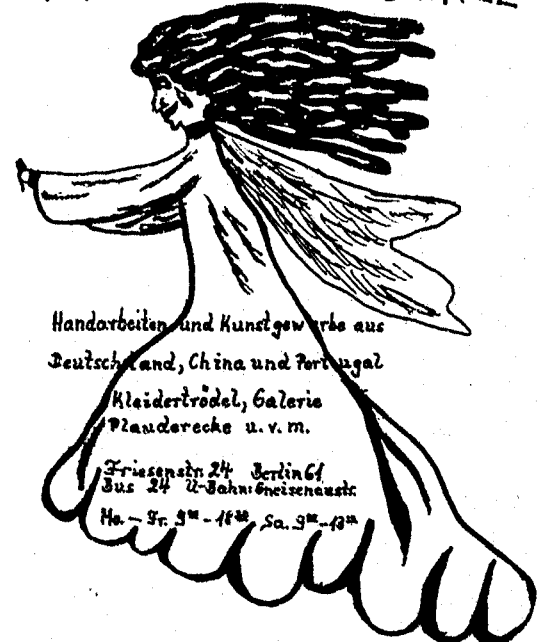 Handarbeiten und Kunstgewerbe aus
Deutschland, China und Portugal
Kleidertrödel, Galerie
Plauderecke u.v.m.
Friesenstr. 24 Berlin 61
Bus 24 U-Bahn: Gneisenaustr.
Mo. - Fr. 9⁰⁰ - 18⁰⁰ Sa. 9⁰⁰ - 13⁰⁰